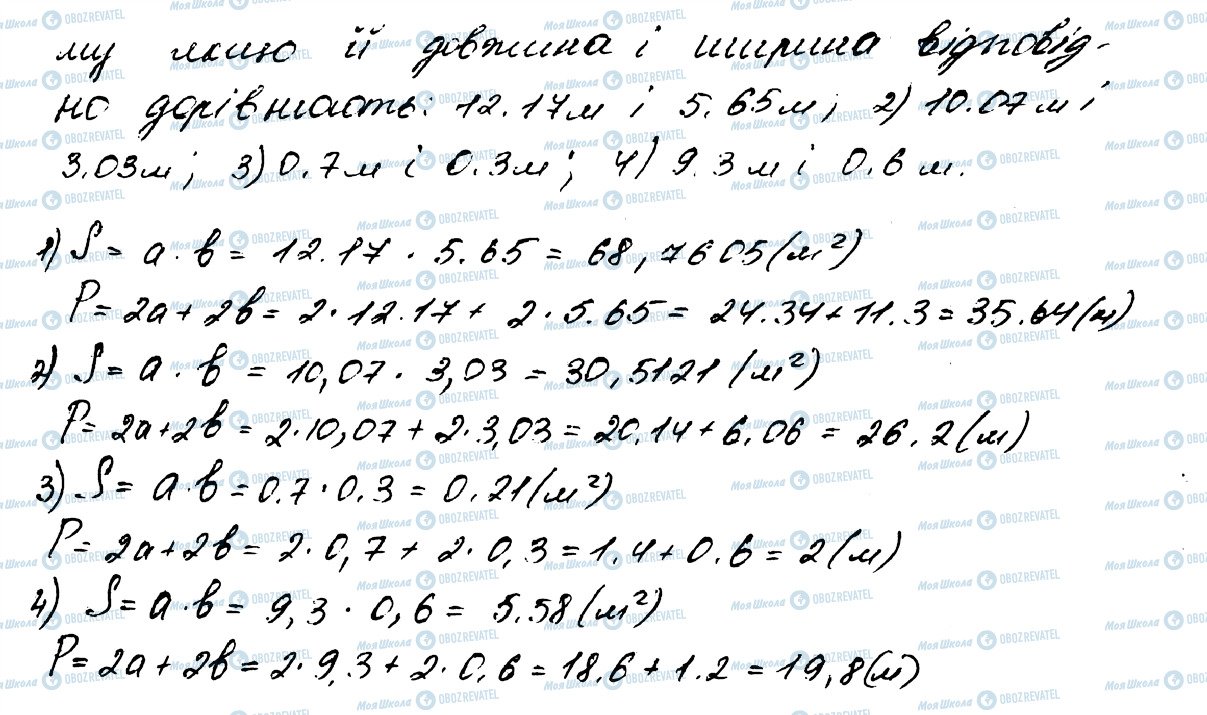 му якщо її довжина і ширина відповід-
но дорівнюють: 12.17м і 5.65м; 2) 10.07м і
3.03м; 3) 0.7м і 0.3м; 4) 9.3м і 0.6 м.
1) S = a · b = 12.17 · 5.65 = 68,7605(м²)
P = 2a + 2b = 2·12.17 + 2·5.65 = 24.34 + 11.3 = 35.64(м)
2) S = a · b = 10,07 · 3,03 = 30,5121 (м²)
P = 2a + 2b = 2·10,07 + 2·3,03 = 20.14 + 6.06 = 26.2(м)
3) S = a·b = 0.7·0.3 = 0.21(м²)
P = 2a + 2b = 2·0,7 + 2·0,3 = 1.4 + 0.6 = 2(м)
4) S = a·b = 9,3 · 0,6 = 5.58(м²)
P = 2a + 2b = 2·9.3 + 2·0.6 = 18.6 + 1.2 = 19,8(м)